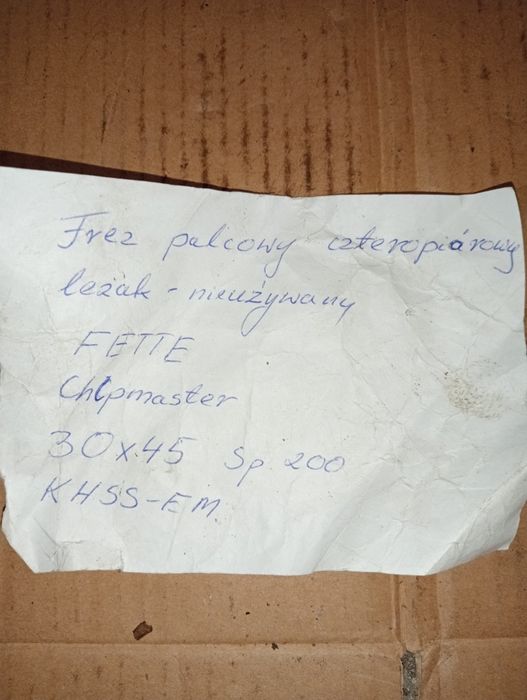 Frez palcowy czteropiórowy
leżak - nieużywany
FETTE
Chipmaster
30x45 Sp. 200
KHSS-EM